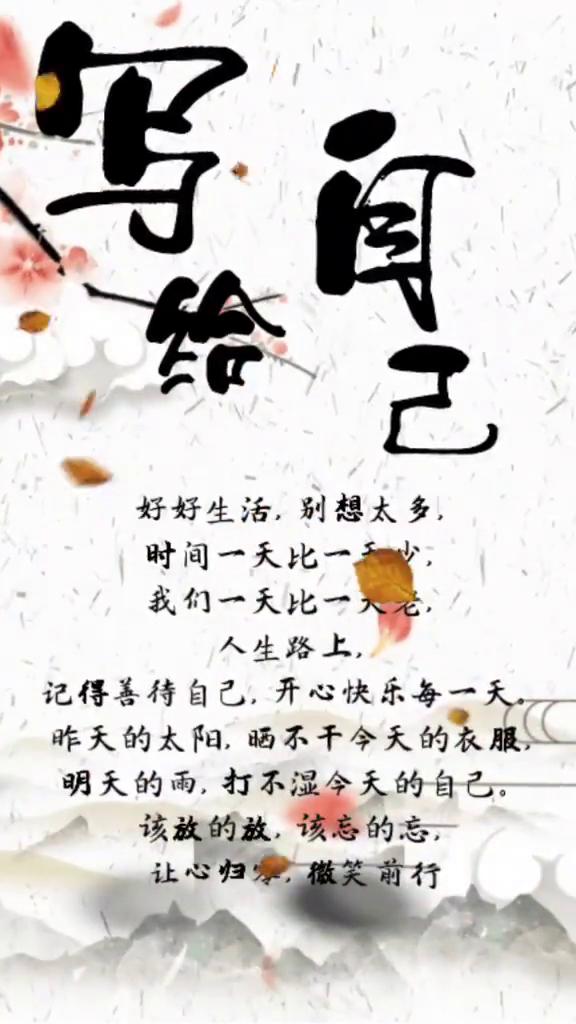 写给
自己
好好生活,别想太多,
时间一天比一天少,
我们一天比一天老,
人生路上,
记得善待自己,开心快乐每一天。
昨天的太阳,晒不干今天的衣服,
明天的雨,打不湿今天的自己。
该放的放,该忘的忘,
让心归零,微笑前行